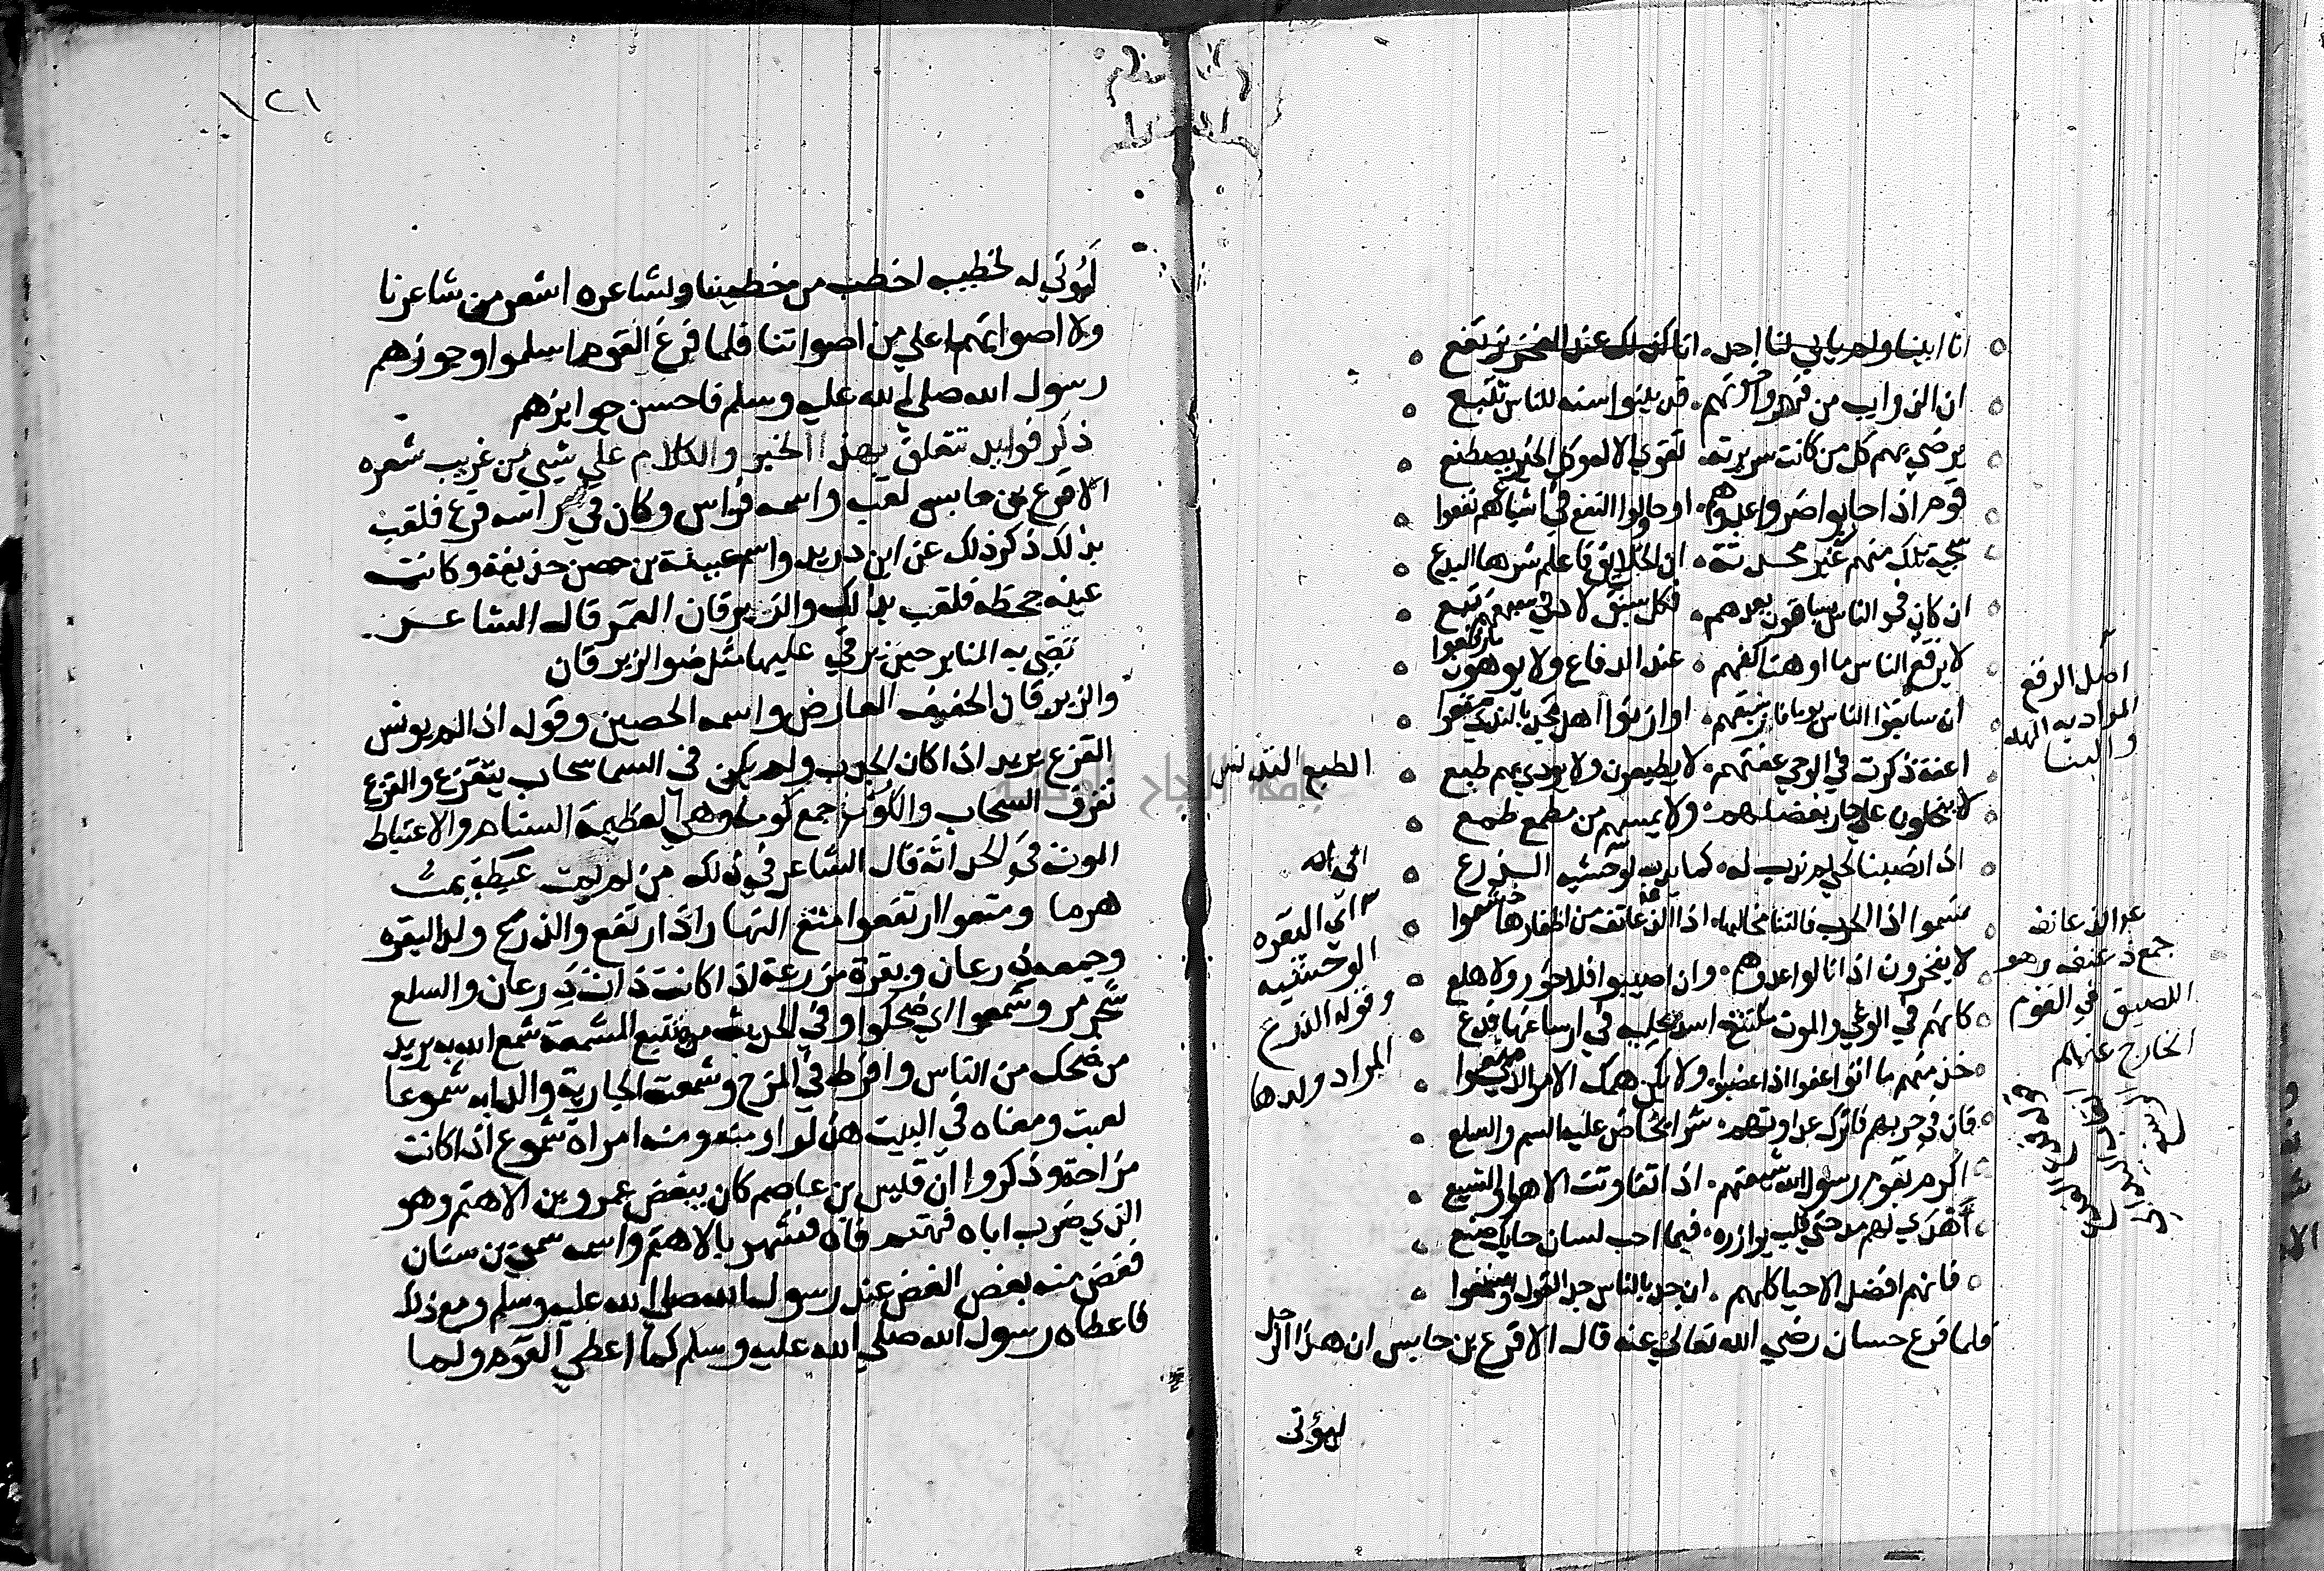 انا ابينا ولم يابي لنا احد ۰ انا كذلك عند الفخر نرتفع
ان الذوايب من فهر واخوتهم ۰ قد بينوا سنه للناس تتبع
يرضي بهم كل من كانت سريرته ۰ تقوي الاله وكل الخير يصطنع
قوم اذا حاربوا ضروا عدوهم ۰ او حاولوا النفع في اشياعهم نفعوا
سجية تلك منهم غير محدثة ۰ ان الخلائق فاعلم شرها البدع
ان كان في الناس سباقون بعدهم ۰ فكل سبق لادني سبقهم تبع
لا يرفع الناس ما اوهت اكفهم ۰ عند الدفاع ولا يوهون ما رفعوا
ان سابقوا الناس يوما فاز سبقهم ۰ او وازنوا اهل مجد بالندي متعوا
اعفة ذكرت في الوحي عفتهم ۰ لا يطبعون ولا يردي بهم طبع
لا يبخلون علي جار بفضلهم ۰ ولا يمسهم من مطمع طمع
اذا نصبنا لحي لم ندب له ۰ كما يدب الي الوحشيه الذرع
نسموا اذا الحرب نالتنا مخالبها ۰ اذا الزعانف من اظفارها خشعوا
لا يفخرون اذا نالوا عدوهم ۰ وان اصيبوا فلا خور ولا هلع
كانهم في الوغي والموت مكتنع اسد بحلية في ارساغها فدع
خذ منهم ما اتوا عفوا اذا غضبوا ۰ ولا يكن همك الامر الذي منعوا
فان في حربهم فاترك عداوتهم ۰ شرا يخاض عليه السم والسلع
اكرم بقوم رسول الله شيعتهم ۰ اذا تفاوتت الاهوا والشيع
اهدي لهم مدحتي قلب يوازره ۰ فيما احب لسان حايك صنع
فانهم افضل الاحيا كلهم ۰ ان جد بالناس جد القول او شمعوا
فلما فرغ حسان رضي الله تعالي عنه قال الاقرع بن حابس ان هذا الرجل
ليؤتى
اصل الرفع
المراد به الهد
والبنا
الطبع التدنس
اي البقره
الوحشيه
وقوله الذرع
المراد ولدها
جمع زعنفه وهو
اللصيق في القوم
الخارج عنهم
١٢١
ليؤتي له لخطيبه اخطب من خطيبنا ولشاعره اشعر من شاعرنا
ولاصواتهم اعلي من اصواتنا فلما فرغ القوم اسلموا وجوزهم
رسول الله صلي الله عليه وسلم فاحسن جوايزهم
ذكر فوايد تتعلق بهذا الخبر والكلام علي شيي من غريب شعره
الاقرع بن حابس لقب واسمه فراس وكان في راسه قرع فلقب
بذلك ذكر ذلك عن ابن دريد واسم عيينة بن حصن حذيفة وكانت
عينه جحظه فلقب بذلك والزبرقان القمر قال الشاعر
تضي به المنابر حين يرقي عليها مثل ضوا الزبرقان
والزبرقان الخفيف العارض واسمه الحصين وقوله اذا لم يونس
القزع يريد اذا كان الجدب ولم يكن في السما سحاب يتقزع والقزع
تفرق السحاب والكوم جمع كوما وهي العظيمة السنام والاعتباط
الموت في الحداثة قال الشاعر في ذلك من لم يمت عبطة يمت
هرما ومتعوا ارتفعوا متع النهار اذا ارتفع والذرع ولد البقره
وجمعه ذرعان وبقرة مذرعة اذا كانت ذات ذرعان والسلع
شجر مر وشمعوا اي ضحكوا وفي الحديث من تتبع المشمعة شمع الله به يريد
من ضحك من الناس وافرط في المزح وشمعت الجارية والدابه شموعا
لعبت ومعناه في البيت هزلوا ومنه امراة شموع اذا كانت
مزاحة وذكروا ان قيس بن عاصم كان يبغض عمرو بن الاهتم وهو
الذي ضرب اباه فهتم فاه فشهر بالاهتم واسمه سمي بن سنان
فغض منه بعض الغض عند رسول الله صلي الله عليه وسلم ومع ذلك
فاعطاه رسول الله صلي الله عليه وسلم كما اعطي القوم ولما
جامعة النجاح الوطنية